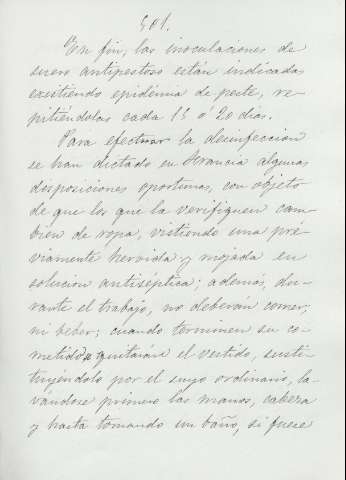 501.
En fin, las inoculaciones de
suero antipestoso están indicadas
existiendo epidemia de peste, re-
pitiéndolas cada 15 ó 20 dias.
Para efectuar la desinfeccion
se han dictado en Francia algunas
disposiciones oportunas, con objeto
de que los que la verifiquen cam-
bien de ropa, vistiendo una pre-
viamente hervida y mojada en
solucion antiséptica; además, du-
rante el trabajo, no deberán comer,
ni beber; cuando terminen su co-
metido se quitarán el vestido, susti-
tuyéndolo por el suyo ordinario, la-
vándose primero las manos, cabeza
y hasta tomando un baño, si fuese